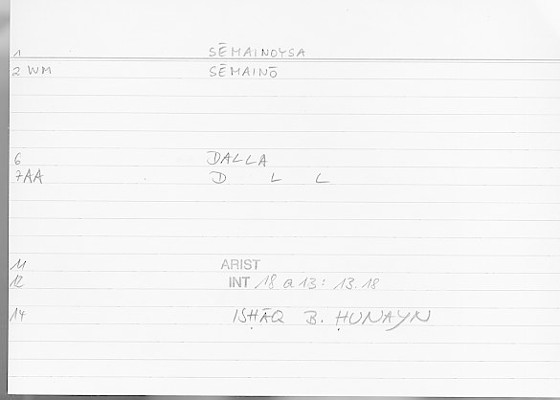 1 SĒMAINOYSA
2 WM SĒMAINŌ
6 DALLA
7AA D L L
11 ARIST
12 INT 18 a 13: 13.18
14 ISḤĀQ B. ḤUNAYN